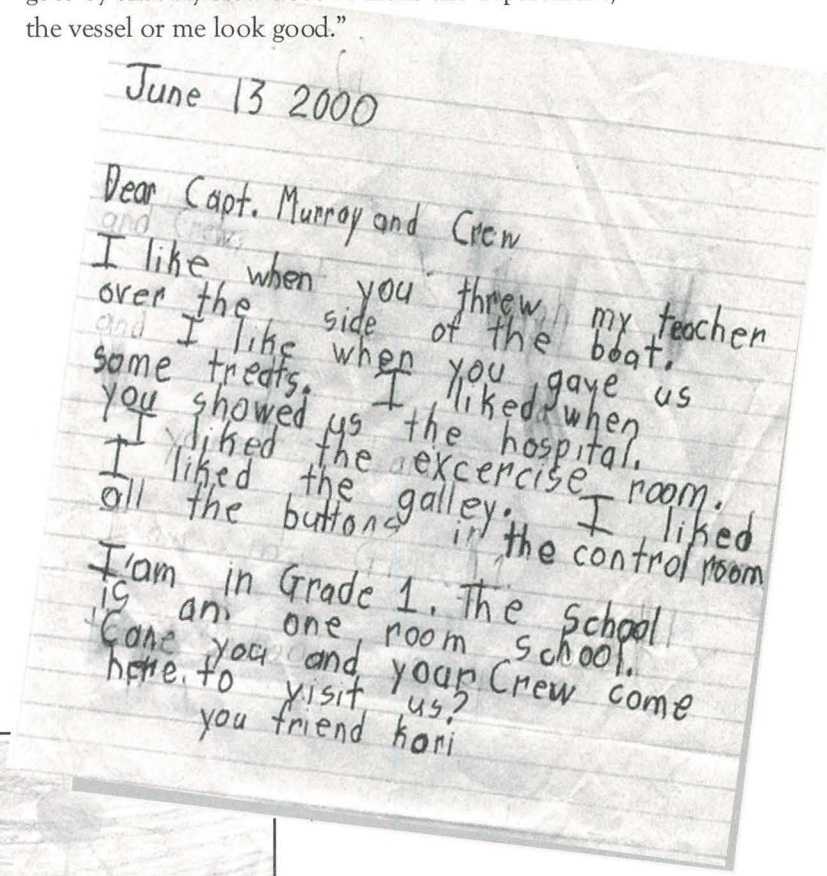 the vessel or me look good.”
June 13 2000
Dear Capt. Murray and Crew
I like when you threw my teacher
over the side of the boat.
and I like when you gave us
some treats. I liked when
you showed us the hospital.
I liked the excercise room.
I liked the galley. I liked
all the buttons in the control room
I'am in Grade 1. The School
is an one room school.
Cane you and your Crew come
here to visit us?
you friend kari